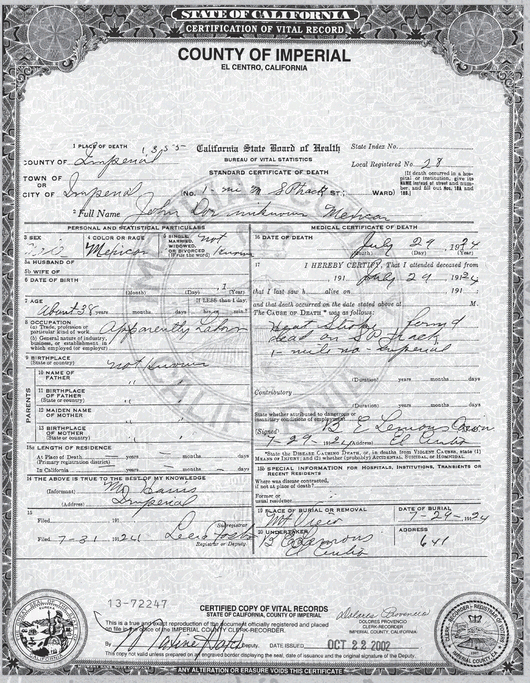 STATE OF CALIFORNIA
CERTIFICATION OF VITAL RECORD
COUNTY OF IMPERIAL
EL CENTRO, CALIFORNIA
1 PLACE OF DEATH
COUNTY OF Imperial
California State Board of Health
BUREAU OF VITAL STATISTICS
State Index No.
TOWN OF OR CITY OF Imperial
STANDARD CERTIFICATE OF DEATH
Local Registered No. 28
(No. 1-mi N SP track ST.; WARD)
[If death occurred in a hospital or institution, give its NAME instead of street and number, and fill out Nos. 18a, 18b.]
2 Full Name John Doe unknown Mexican
PERSONAL AND STATISTICAL PARTICULARS
3 SEX
4 COLOR OR RACE Mexican
5 SINGLE, MARRIED, WIDOWED, OR DIVORCED (Write the word) not known
5a HUSBAND OF
5b WIFE OF
6 DATE OF BIRTH
(Month) (Day) (Year)
7 AGE about 38 years months days
If LESS than 1 day, hours min?
8 OCCUPATION
(a) Trade, profession or particular kind of work
(b) General nature of industry, business, or establishment in which employed (or employer)
Apparently Labor
9 BIRTHPLACE
(State or country) not known
PARENTS
10 NAME OF FATHER "
11 BIRTHPLACE OF FATHER
(State or country) "
12 MAIDEN NAME OF MOTHER "
13 BIRTHPLACE OF MOTHER
(State or country) "
13a LENGTH OF RESIDENCE
At Place of Death years months days
(Primary registration district)
In California years months days
14 THE ABOVE IS TRUE TO THE BEST OF MY KNOWLEDGE
(Informant)
(Address) Imperial
15
Filed 191
Subregistrar
Filed 7-31 1924
Registrar or Deputy
MEDICAL CERTIFICATE OF DEATH
16 DATE OF DEATH July 29 1924
(Month) (Day) (Year)
17 I HEREBY CERTIFY, That I attended deceased from
191 July 29 1924
that I last saw h alive on 191
and that death occurred on the date stated above at M.
The CAUSE OF DEATH* was as follows:
Heat Stroke found
dead on SP track
1-mile no Imperial
(Duration) years months days
Contributory
(Duration) years months days
State whether attributed to dangerous or insanitary conditions of employment
(Signed) B E Lemons
7-29-1924 (Address) El Centro
*State the DISEASE CAUSING DEATH, or, in deaths from VIOLENT CAUSES, state (1) MEANS OF INJURY; and (2) whether (probably) ACCIDENTAL, SUICIDAL or HOMICIDAL.
18b SPECIAL INFORMATION FOR HOSPITALS, INSTITUTIONS, TRANSIENTS OR RECENT RESIDENTS
Where was disease contracted, if not at place of death?
Former or usual residence
19 PLACE OF BURIAL OR REMOVAL Mt View
DATE OF BURIAL 7-29-1924
20 UNDERTAKER B E Lemons
El Centro
ADDRESS 641
13-72247
CERTIFIED COPY OF VITAL RECORDS
STATE OF CALIFORNIA, COUNTY OF IMPERIAL
This is a true and exact reproduction of the document officially registered and placed on file in the office of the IMPERIAL COUNTY CLERK-RECORDER.
Dolores Provencio
DOLORES PROVENCIO
CLERK-RECORDER
IMPERIAL COUNTY, CALIFORNIA
By Deputy. DATE ISSUED OCT 22 2002
This copy not valid unless prepared on engraved border displaying the seal, date of issuance and the original signature of the Deputy.
ANY ALTERATION OR ERASURE VOIDS THIS CERTIFICATE